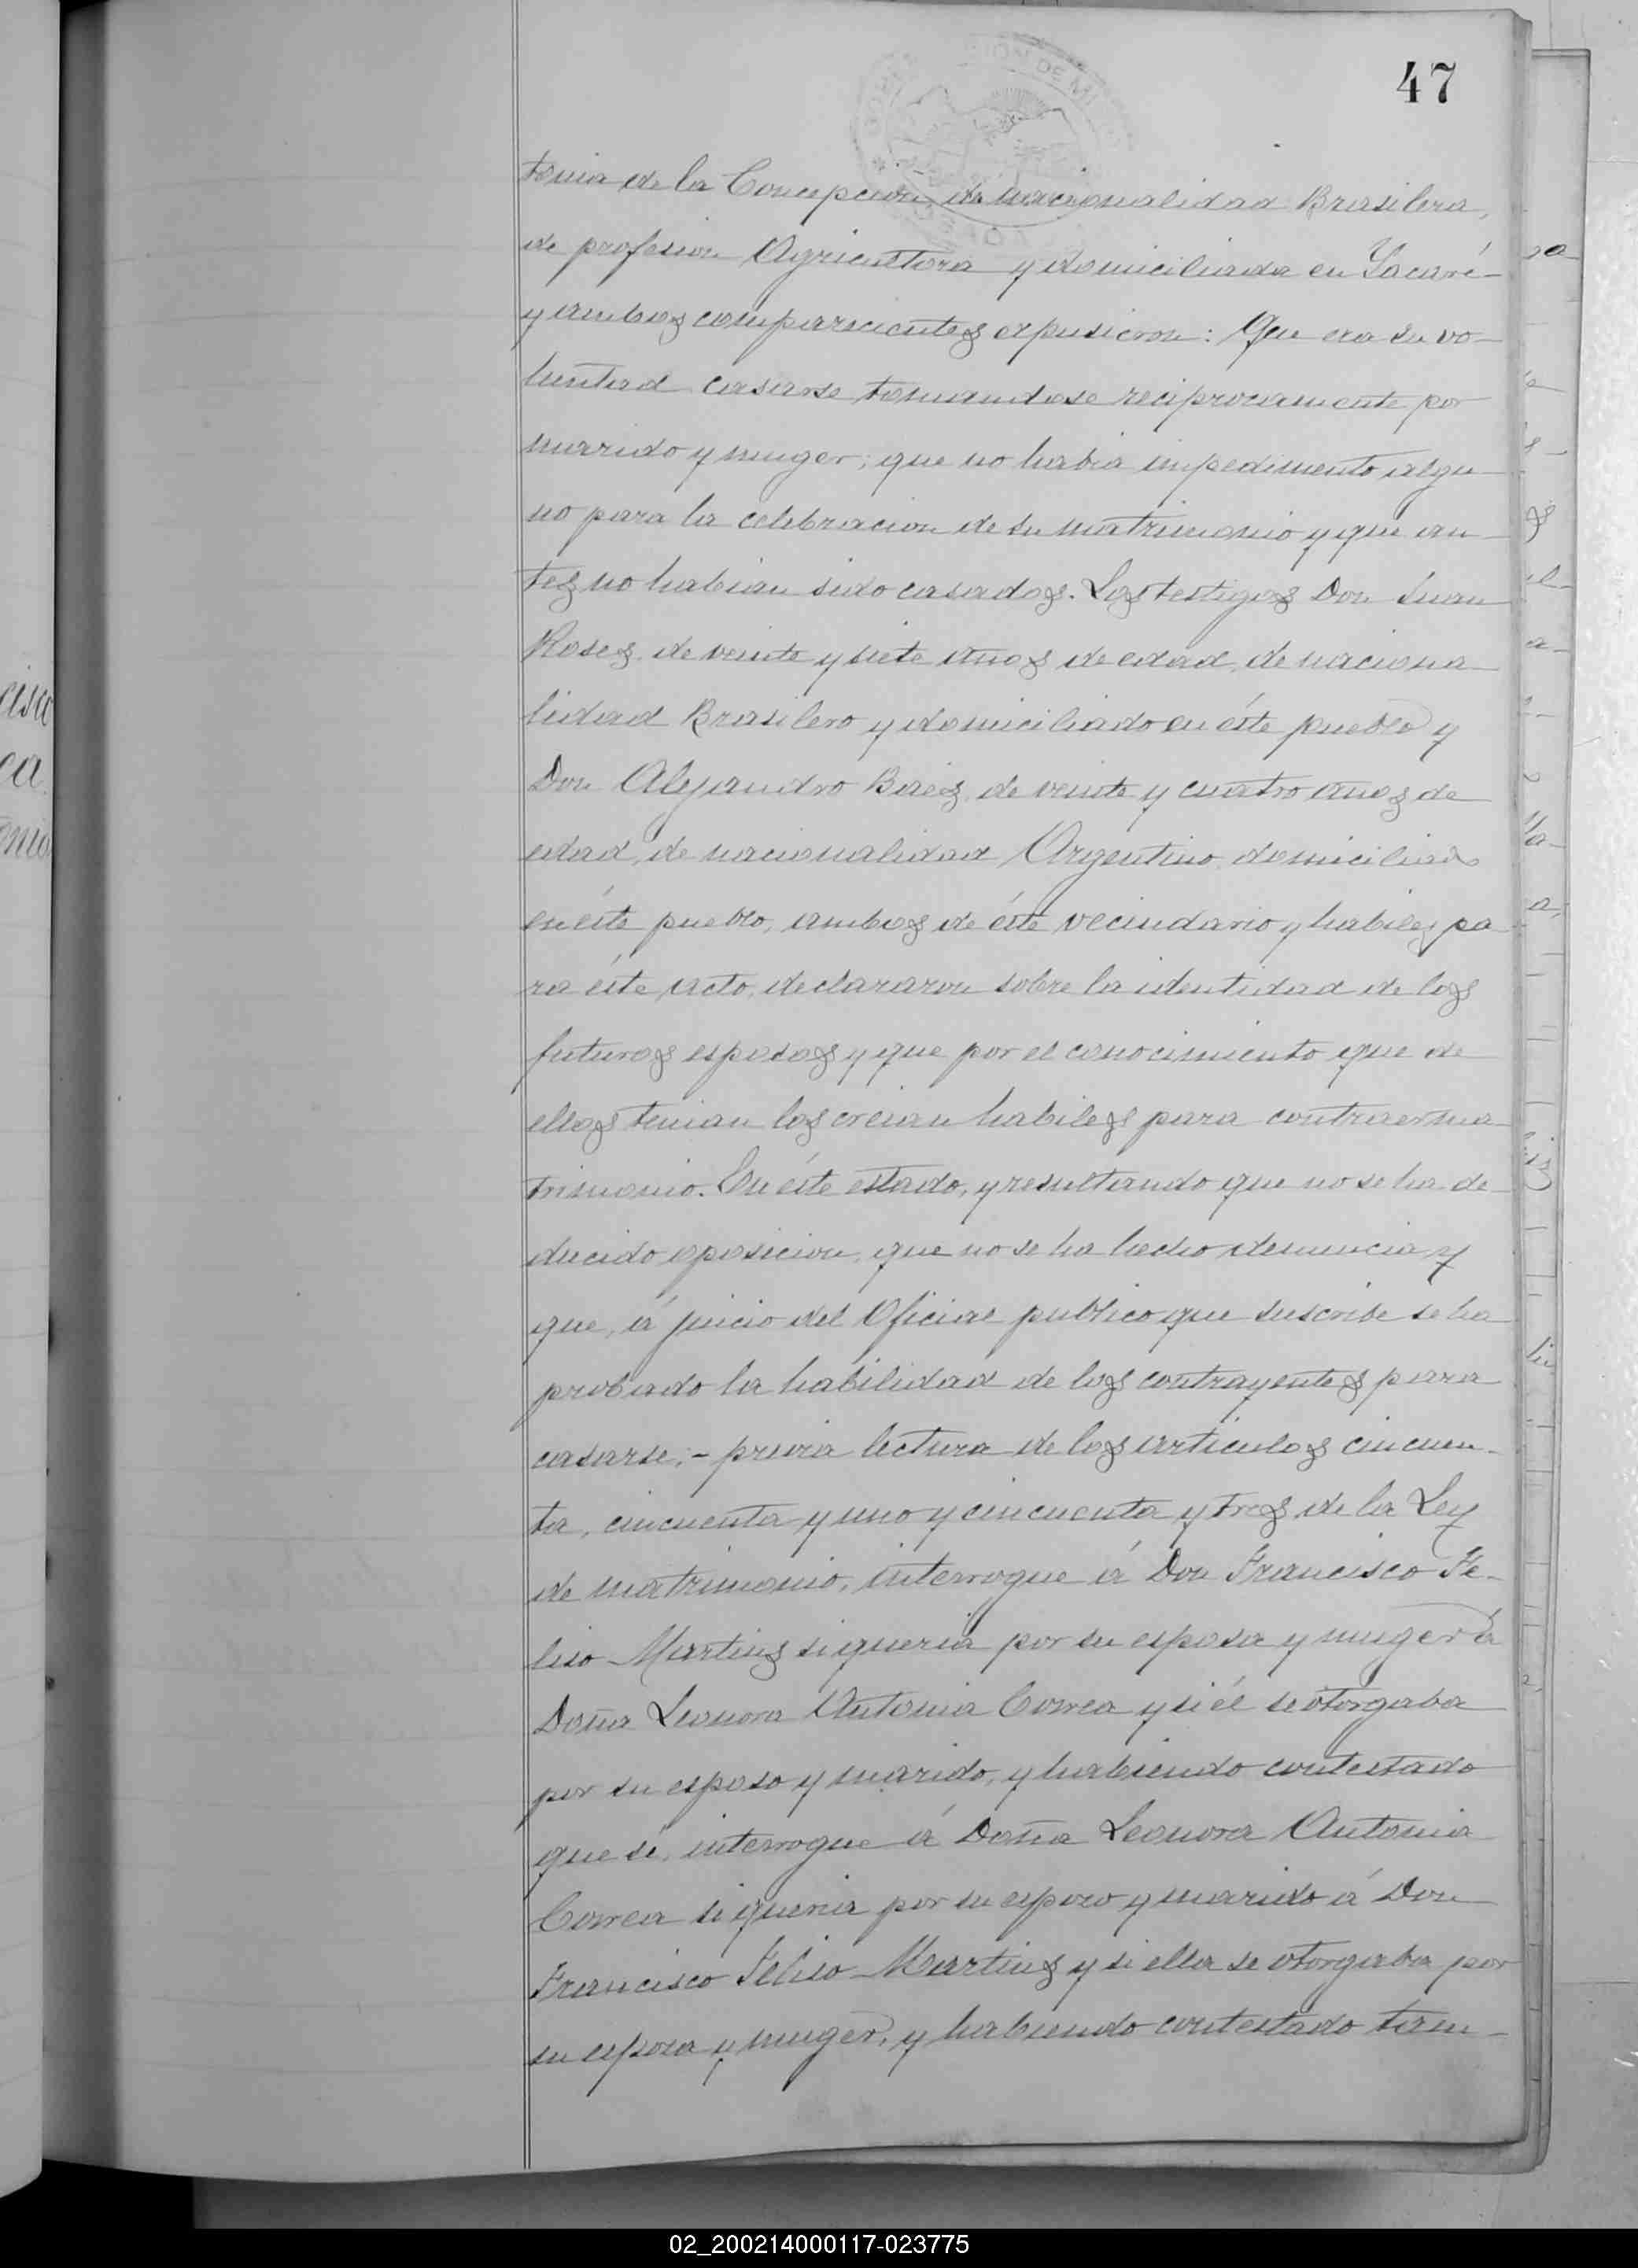 47
tonia de la Concepcion, de nacionalidad Brasilera,
de profesion Agricultora y domiciliada en Yacaré
y ambos comparecientes expusieron: Que era su vo-
luntad casarse tomandose reciprocamente por
marido y muger; que no habia impedimento algu-
no para la celebracion de su matrimonio y que an-
tes no habian sido casados. Los testigos Don Juan
Roses, de veinte y siete años de edad, de naciona-
lidad Brasilero y domiciliado en éste pueblo y
Don Alejandro Baés, de veinte y cuatro años de
edad, de nacionalidad Argentino, domiciliado
en éste pueblo, ambos de éste vecindario y habiles pa
ra éste acto, declararon sobre la identidad de los
futuros esposos y que por el conocimiento que de
ellos tenian los creian habiles para contraer ma-
trimonio. En éste estado, y resultando que no se ha de-
ducido oposicion, que no se ha hecho denuncia y
que, á juicio del Oficial publico que suscribe se ha
probado la habilidad de los contrayentes para
casarse;- previa lectura de los articulos cincuen-
ta, cincuenta y uno y cincuenta y tres de la Ley
de matrimonio, interrogue á Don Francisco Fe-
liso Martins si queria por su esposa y muger á
Doña Leonora Antonia Correa y si él se otorgaba
por su esposo y marido, y habiendo contestado
que si, interrogue á Doña Leonora Antonia
Correa si queria por su esposo y marido á Don
Francisco Feliso Martins y si ella se otorgaba por
su esposa y muger, y habiendo contestado tam-
02_200214000117-023775